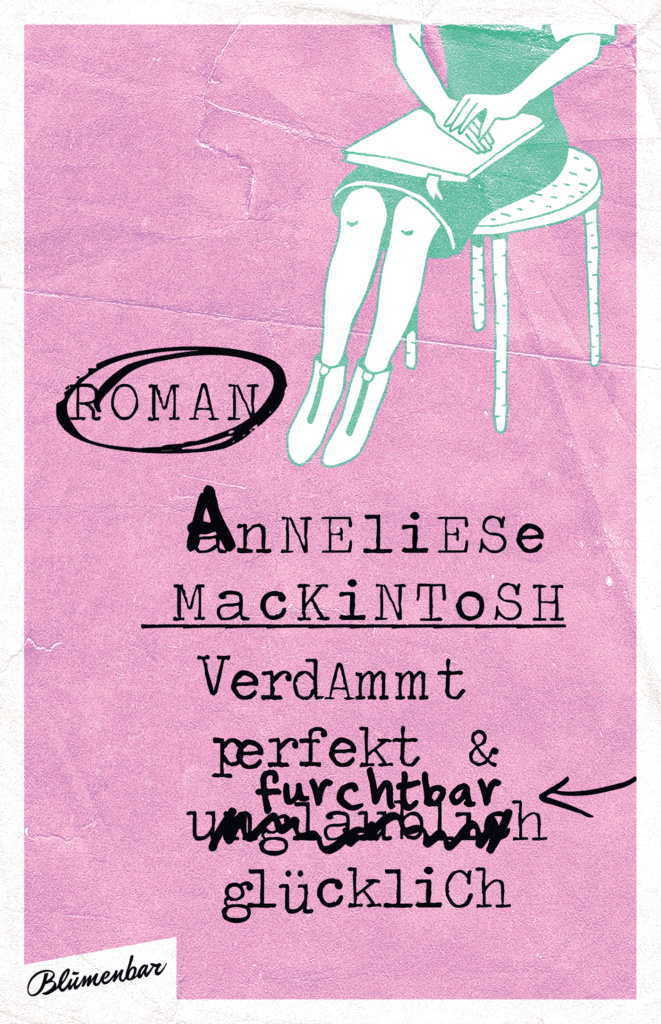 ROMAN
AnNEliESe
MacKiNToSH
VerdAmmt
perfekt &
furchtbar
unglaublich
glückliCh
Blumenbar